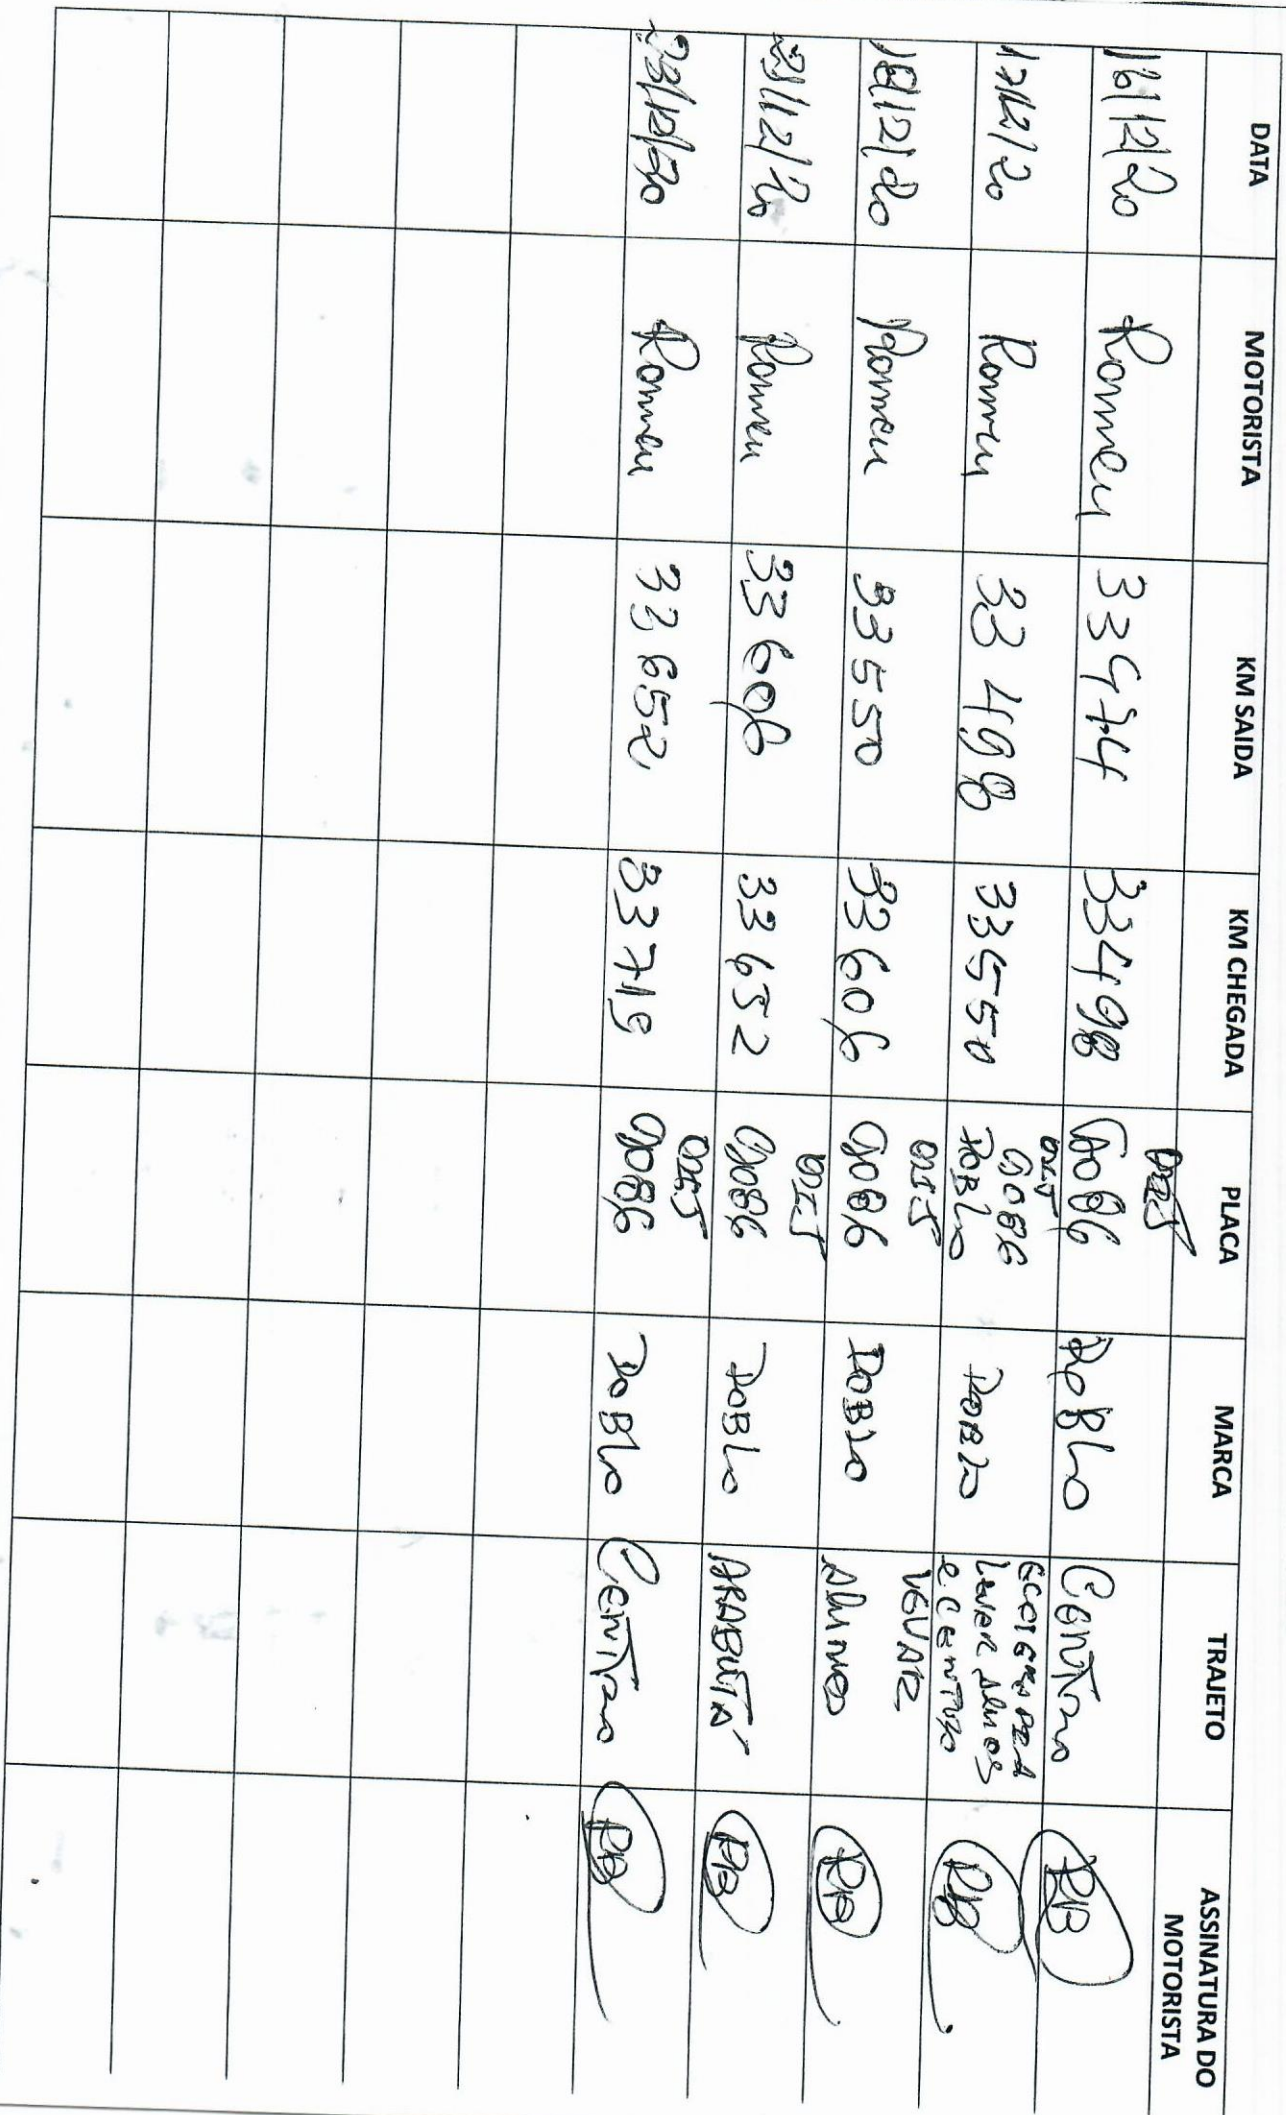 DATA MOTORISTA KM SAIDA KM CHEGADA PLACA MARCA TRAJETO ASSINATURA DO MOTORISTA
16/12/20 Romeu 33474 33498 Doblo Centro RB
17/12/20 Romeu 33498 33550 Doblo Doblo Levar e Centro RB
18/12/20 Romeu 33550 33606 Doblo Levar Alunos RB
21/12/20 Romeu 33606 33652 Doblo ARABUTÃ RB
23/12/20 Romeu 33652 33719 Doblo Centro RB